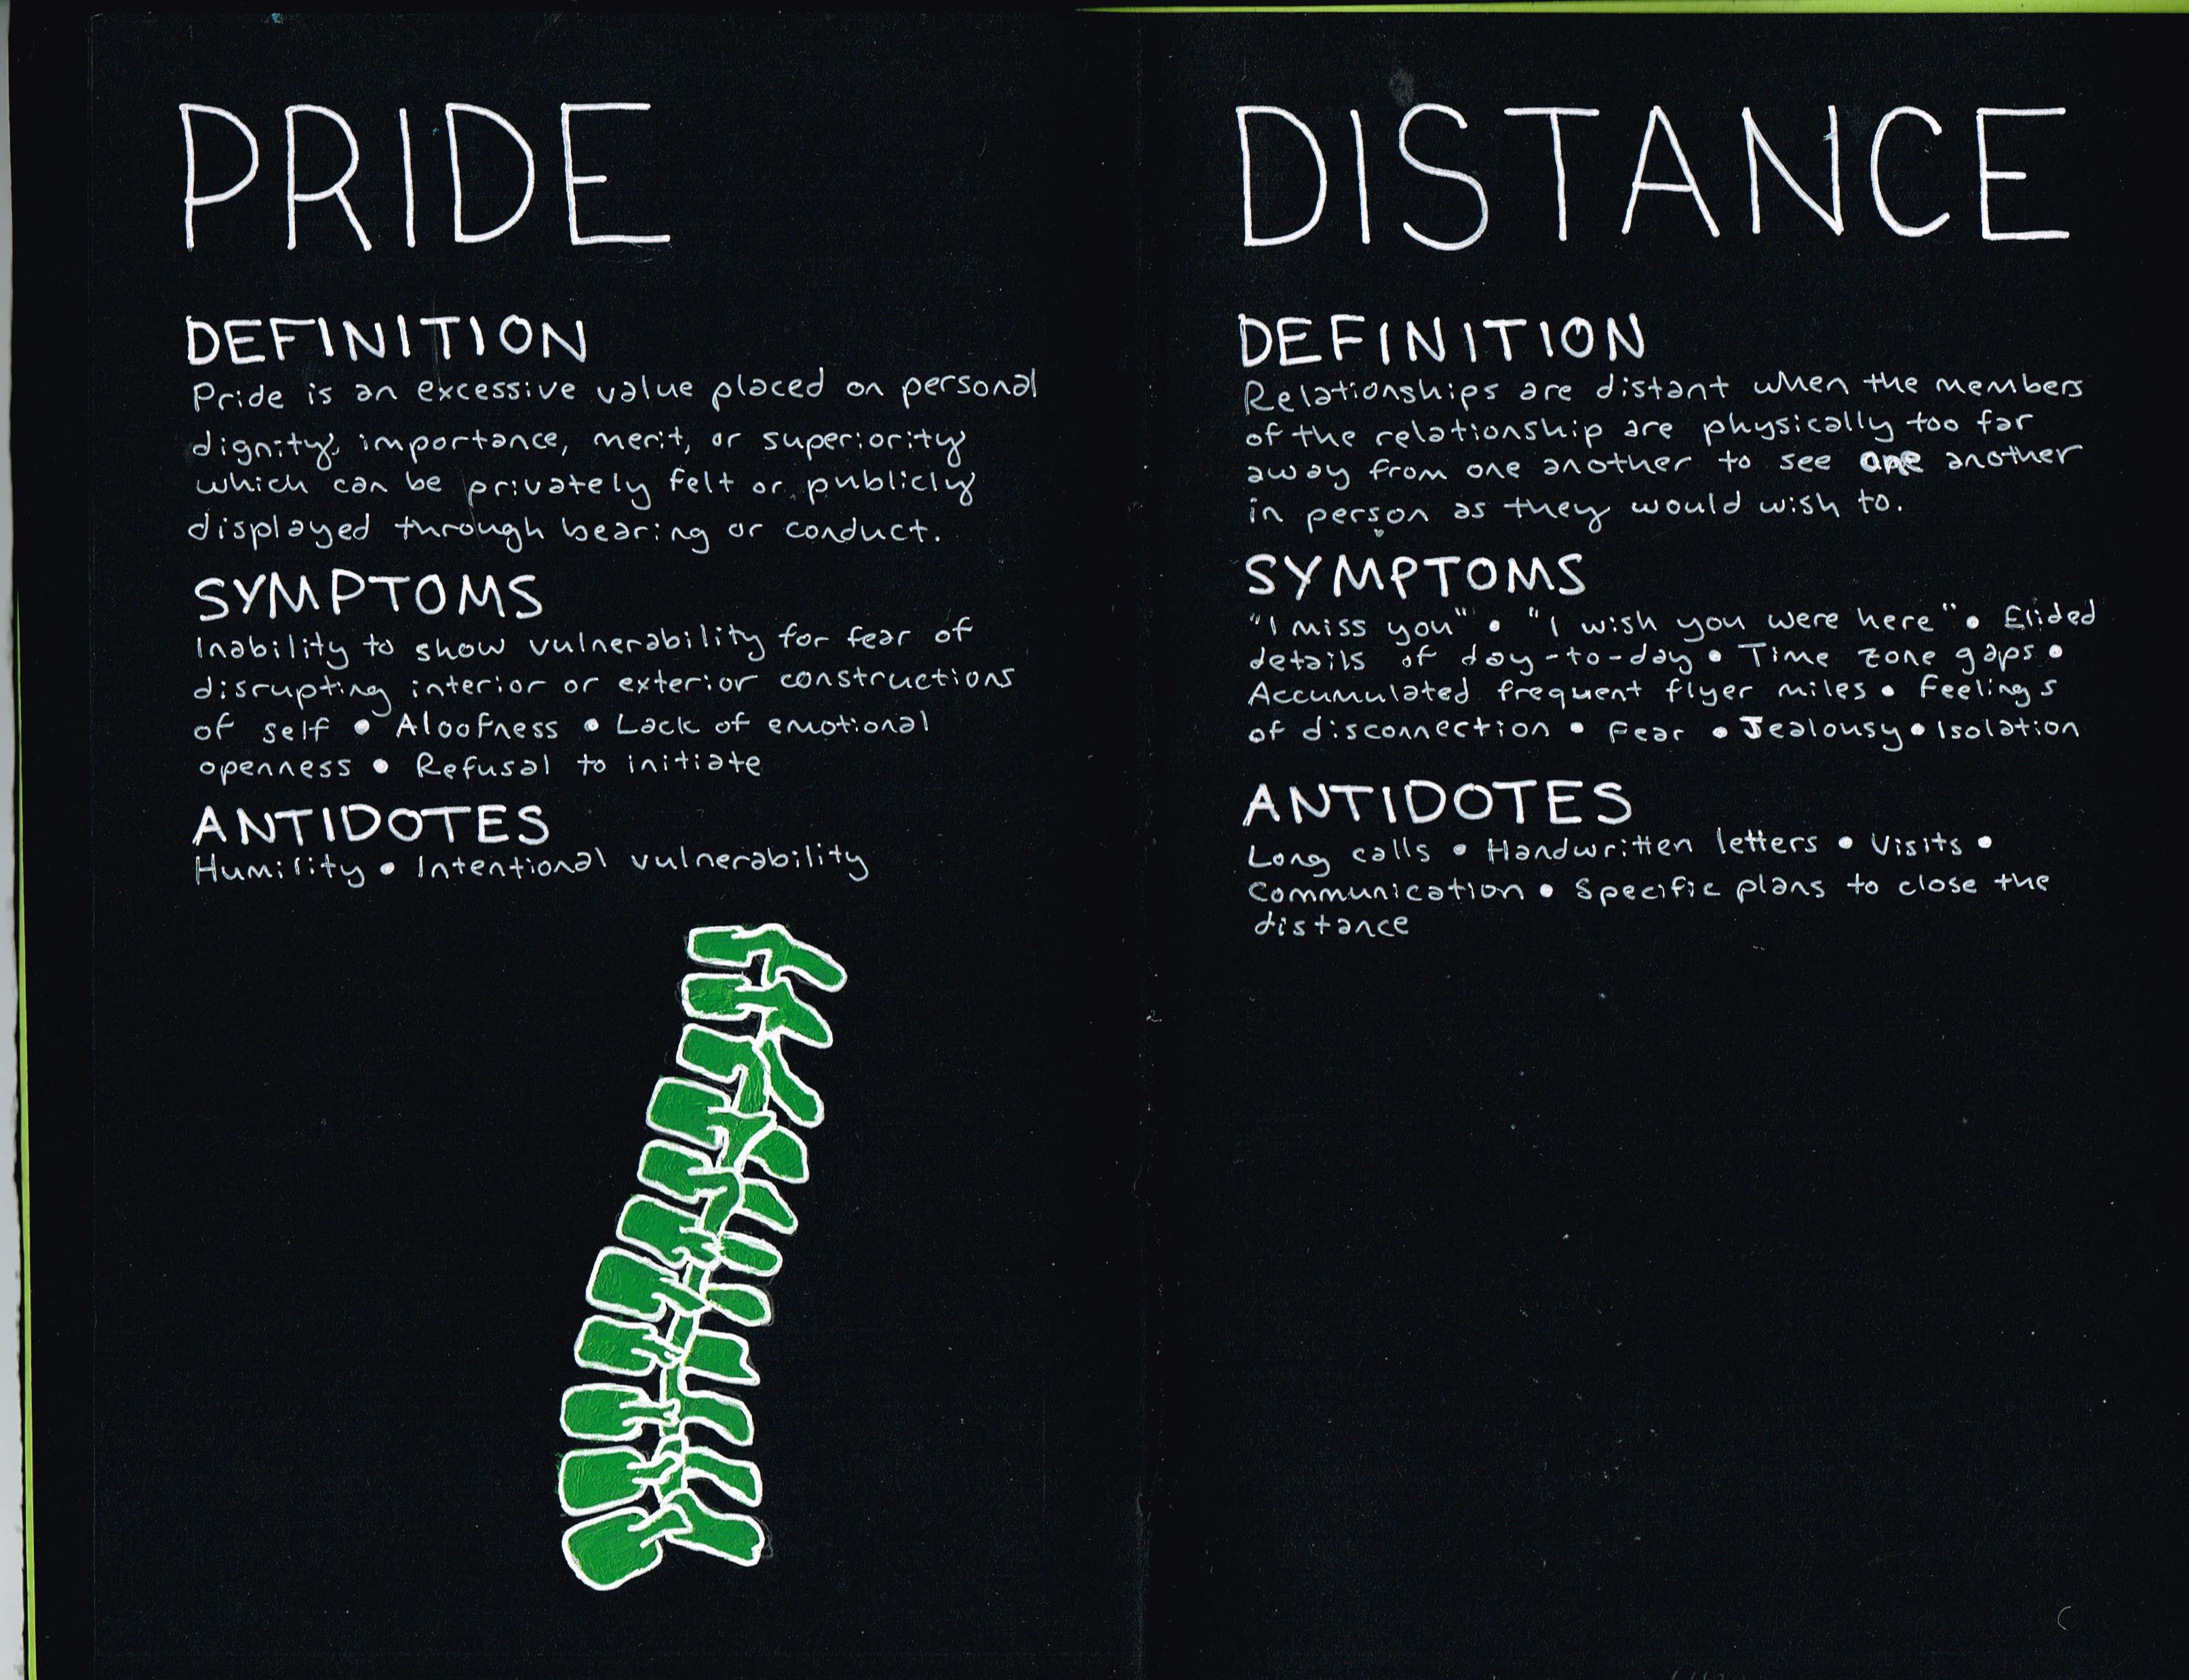 PRIDE
DEFINITION
Pride is an excessive value placed on personal
dignity, importance, merit, or superiority
which can be privately felt or publicly
displayed through bearing or conduct.
SYMPTOMS
Inability to show vulnerability for fear of
disrupting interior or exterior constructions
of self • Aloofness • Lack of emotional
openness • Refusal to initiate
ANTIDOTES
Humility • Intentional vulnerability
DISTANCE
DEFINITION
Relationships are distant when the members
of the relationship are physically too far
away from one another to see one another
in person as they would wish to.
SYMPTOMS
"I miss you" • "I wish you were here" • Elided
details of day-to-day • Time zone gaps •
Accumulated frequent flyer miles • Feelings
of disconnection • Fear • Jealousy • Isolation
ANTIDOTES
Long calls • Handwritten letters • Visits •
Communication • Specific plans to close the
distance